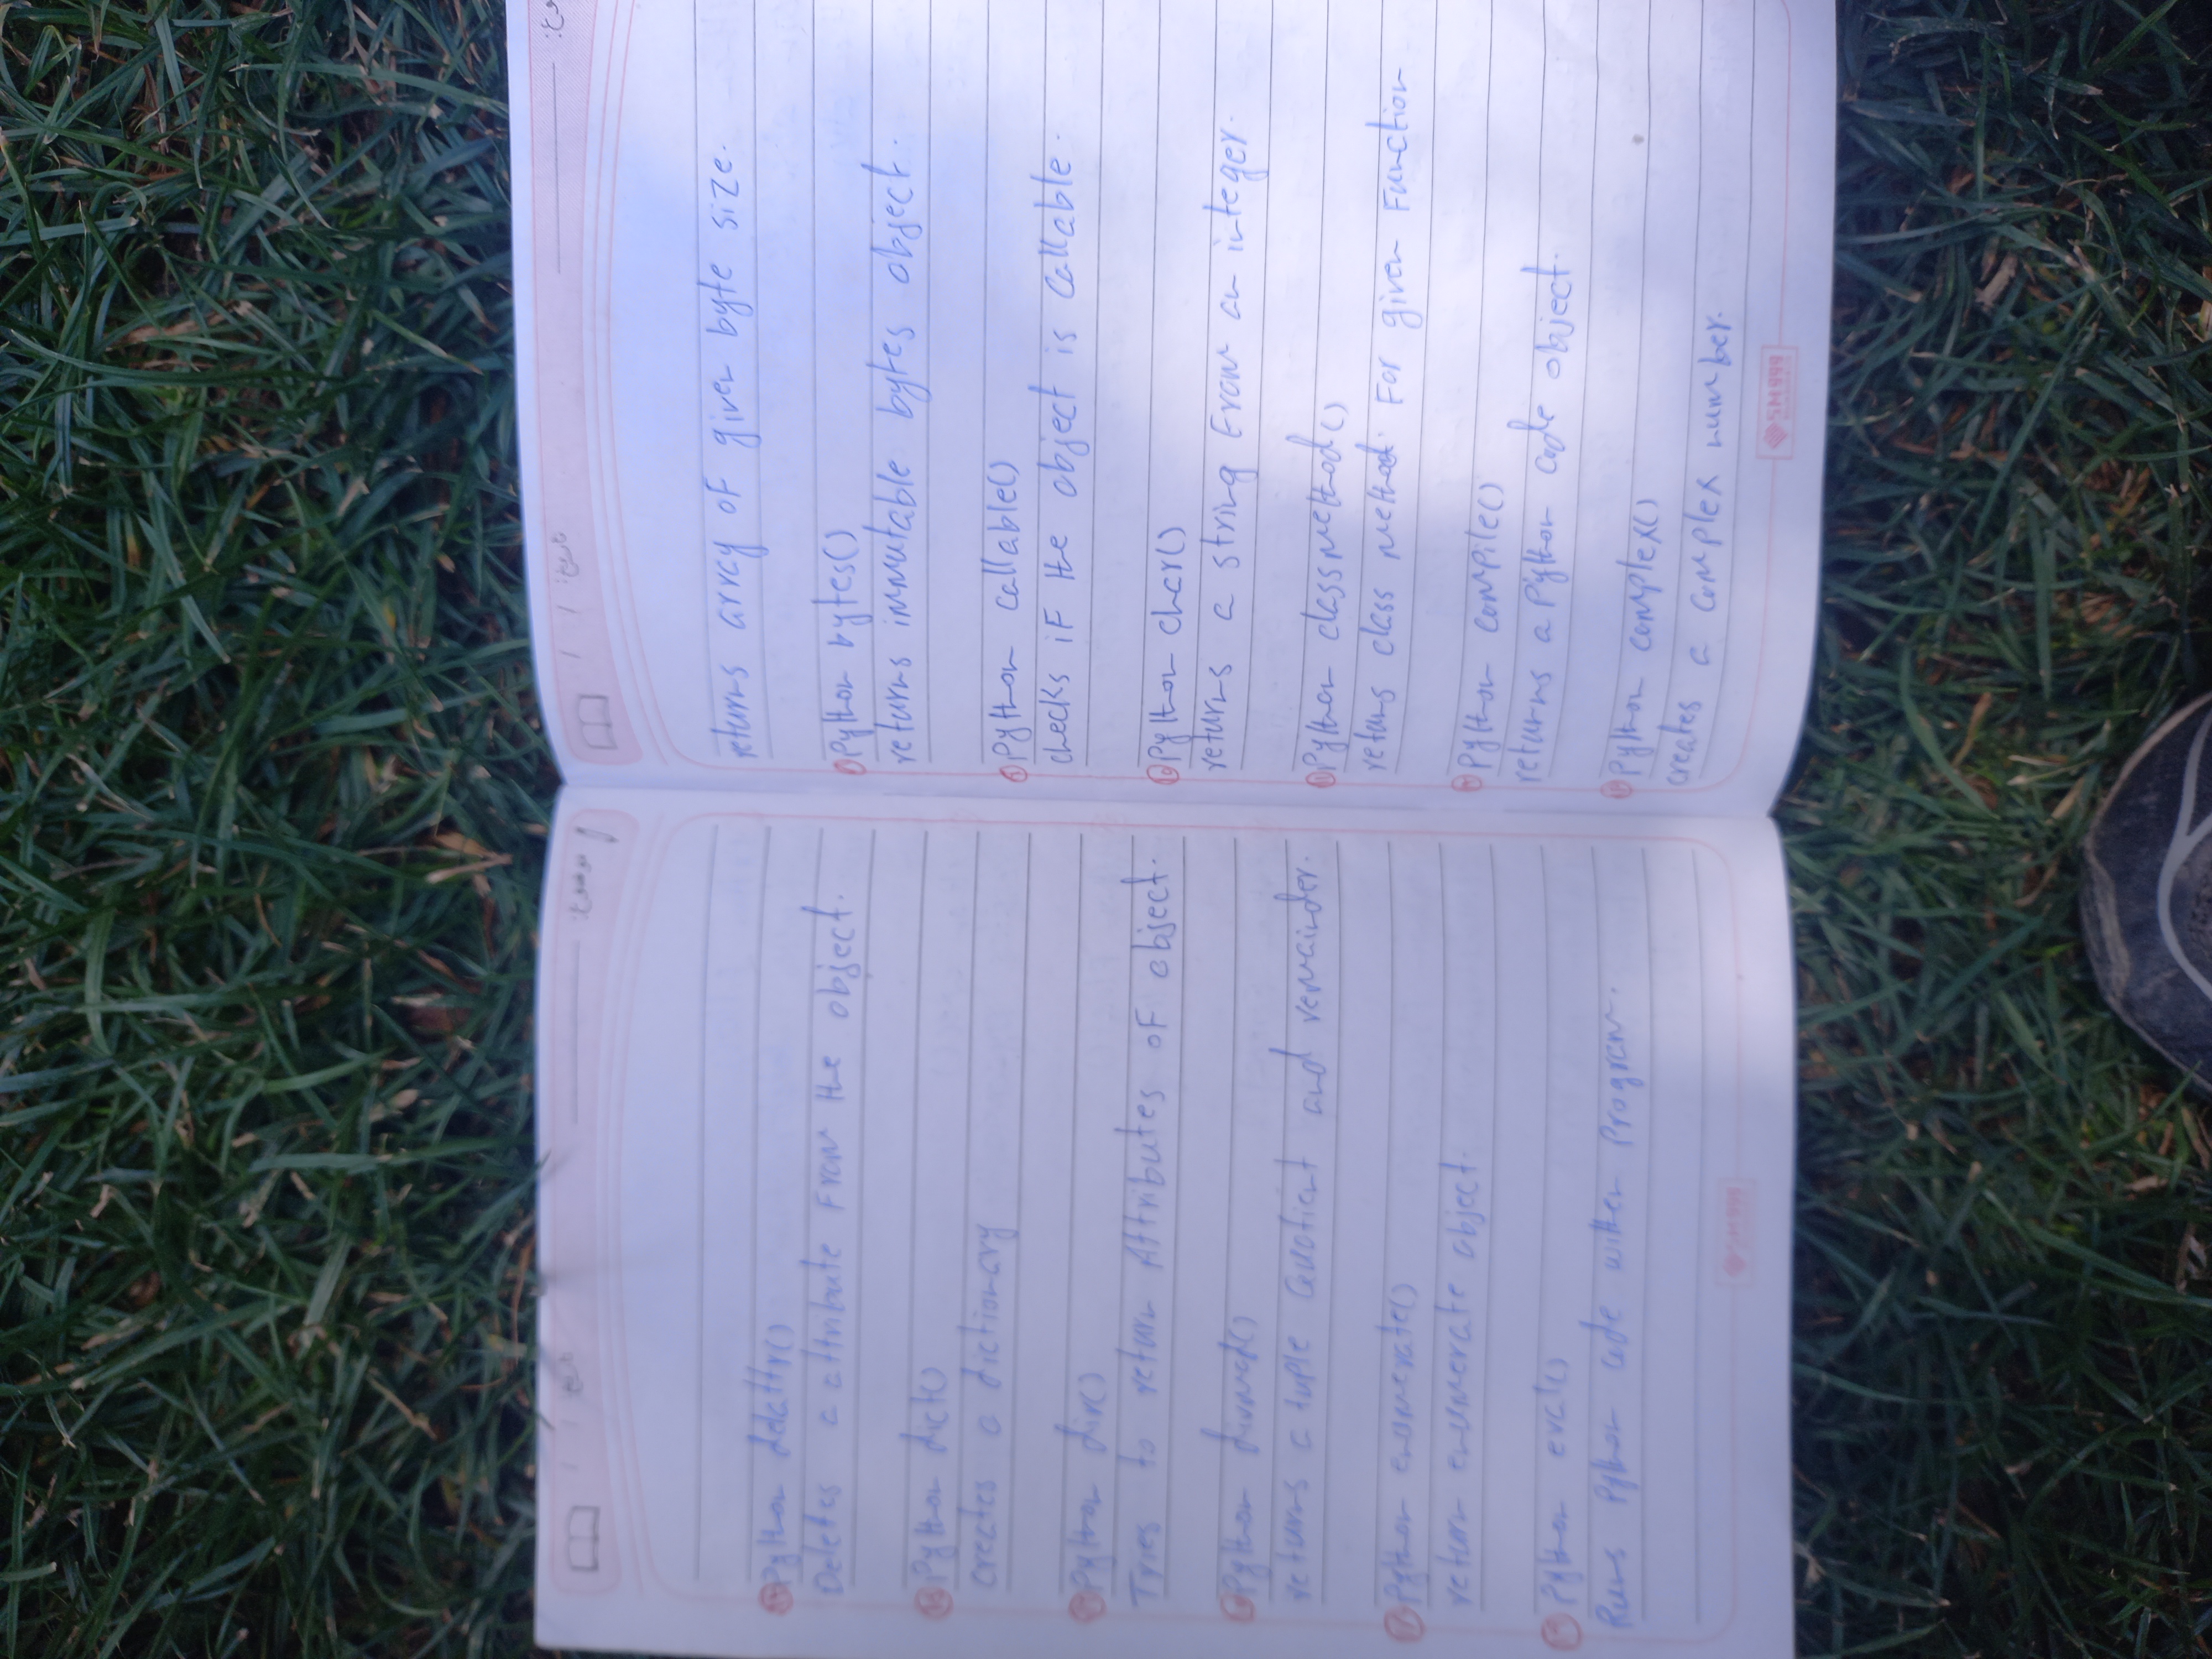 موضوع: تاریخ: / /
Python delattr()
Deletes a attribute From the object.
Python dict()
creates a dictionary
Python dir()
Tries to return Attributes of object.
Python divmod()
returns a tuple Quotient and remainder.
17 Python enumerate()
return enumerate object.
Python eval()
Runs Python code within Program.
SM999
تاریخ: / /
returns array of given byte size.
Python bytes()
returns immutable bytes object.
9 Python callable()
checks if the object is callable.
10 Python char()
returns a string From an integer.
11 Python classmethod()
returns class method For given Function
Python compile()
returns a Python code object.
Python complex()
creates a complex number.
SM999